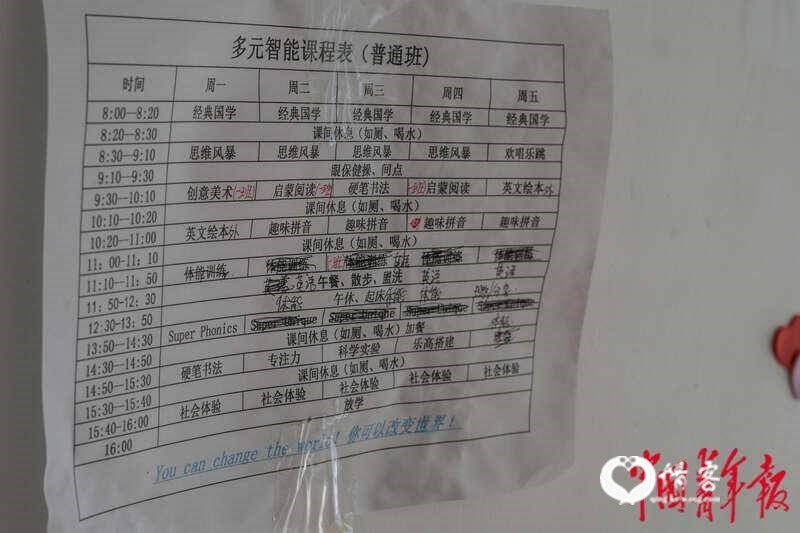 多元智能课程表（普通班）
时间 周一 周二 周三 周四 周五
8:00—8:20 经典国学 经典国学 经典国学 经典国学 经典国学
8:20—8:30 课间休息（如厕、喝水）
8:30—9:10 思维风暴 思维风暴 思维风暴 思维风暴 欢唱乐跳
9:10—9:30 眼保健操、间点
9:30—10:10 创意美术 启蒙阅读 硬笔书法 启蒙阅读 英文绘本外
10:10—10:20 课间休息（如厕、喝水）
10:20—11:00 英文绘本外 趣味拼音 趣味拼音 趣味拼音 趣味拼音
11:00—11:10 课间休息（如厕、喝水）
11:10—11:50 体能训练 体能训练 体能训练 体能训练 体能训练
11:50-12:30 午餐、散步、盥洗
12:30-13:50 午休、起床
13:50—14:30 Super Phonics
14:30-14:50 课间休息（如厕、喝水）加餐
14:50-15:30 硬笔书法 专注力 科学实验 乐高搭建
15:30—15:40 课间休息（如厕、喝水）
15:40-16:00 社会体验 社会体验 社会体验 社会体验 社会体验
16:00 放学
You can change the world! 你可以改变世界！
中国青年报
酷客